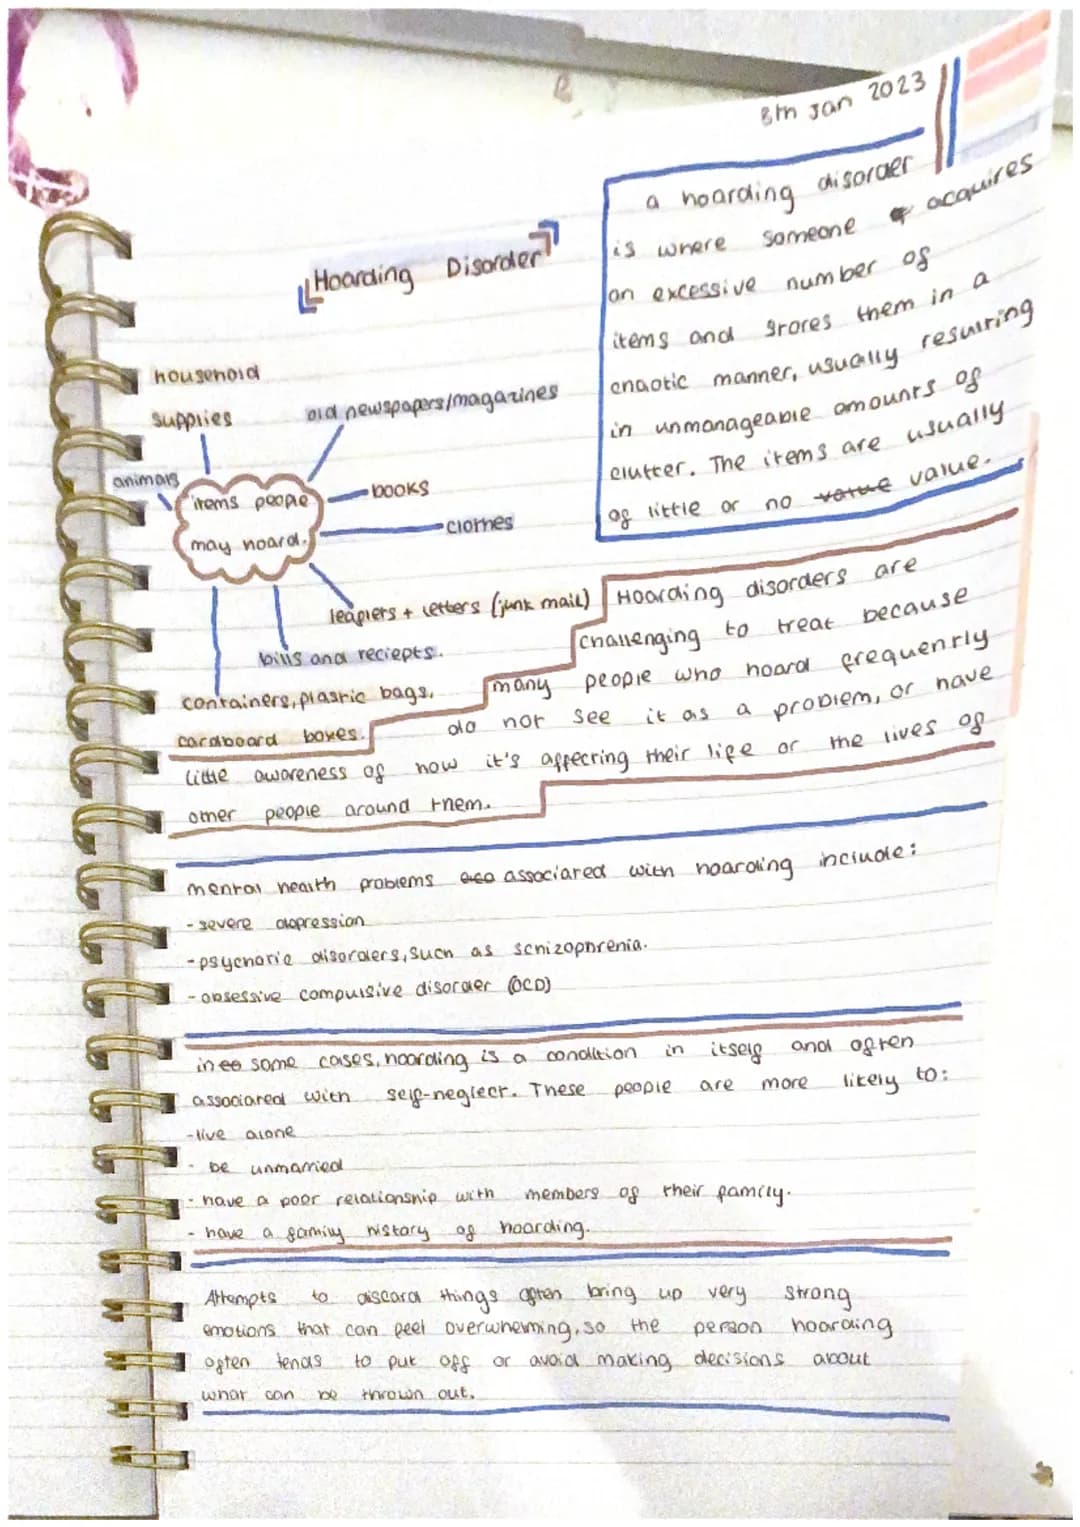 8th Jan 2023
a hoarding disorder
is where someone acquires
an excessive number of
items and stores them in a
chaotic manner, usually resulting
in unmanageable amounts of
clutter. The items are usually
of little or no value value.
Hoarding Disorder
household
supplies
old newspapers/magazines
animals
books
items people
may hoard.
clothes
leaflets + letters (junk mail)
bills and reciepts.
containers, plastic bags,
cardboard boxes.
Hoarding disorders are
challenging to treat because
many people who hoard frequently
do not see it as a problem, or have
little awareness of how it's affecting their life or the lives of
other people around them.
mental health problems associated with hoarding include:
- severe depression
- psychotic disorders, such as schizophrenia.
- obsessive compulsive disorder (OCD)
in some cases, hoarding is a condition in itself and often
associated with self-neglect. These people are more likely to:
- live alone
- be unmarried
- have a poor relationship with members of their family.
- have a family history of hoarding.
Attempts to discard things often bring up very strong
emotions that can feel overwhelming, so the person hoarding
often tends to put off or avoid making decisions about
what can be thrown out.